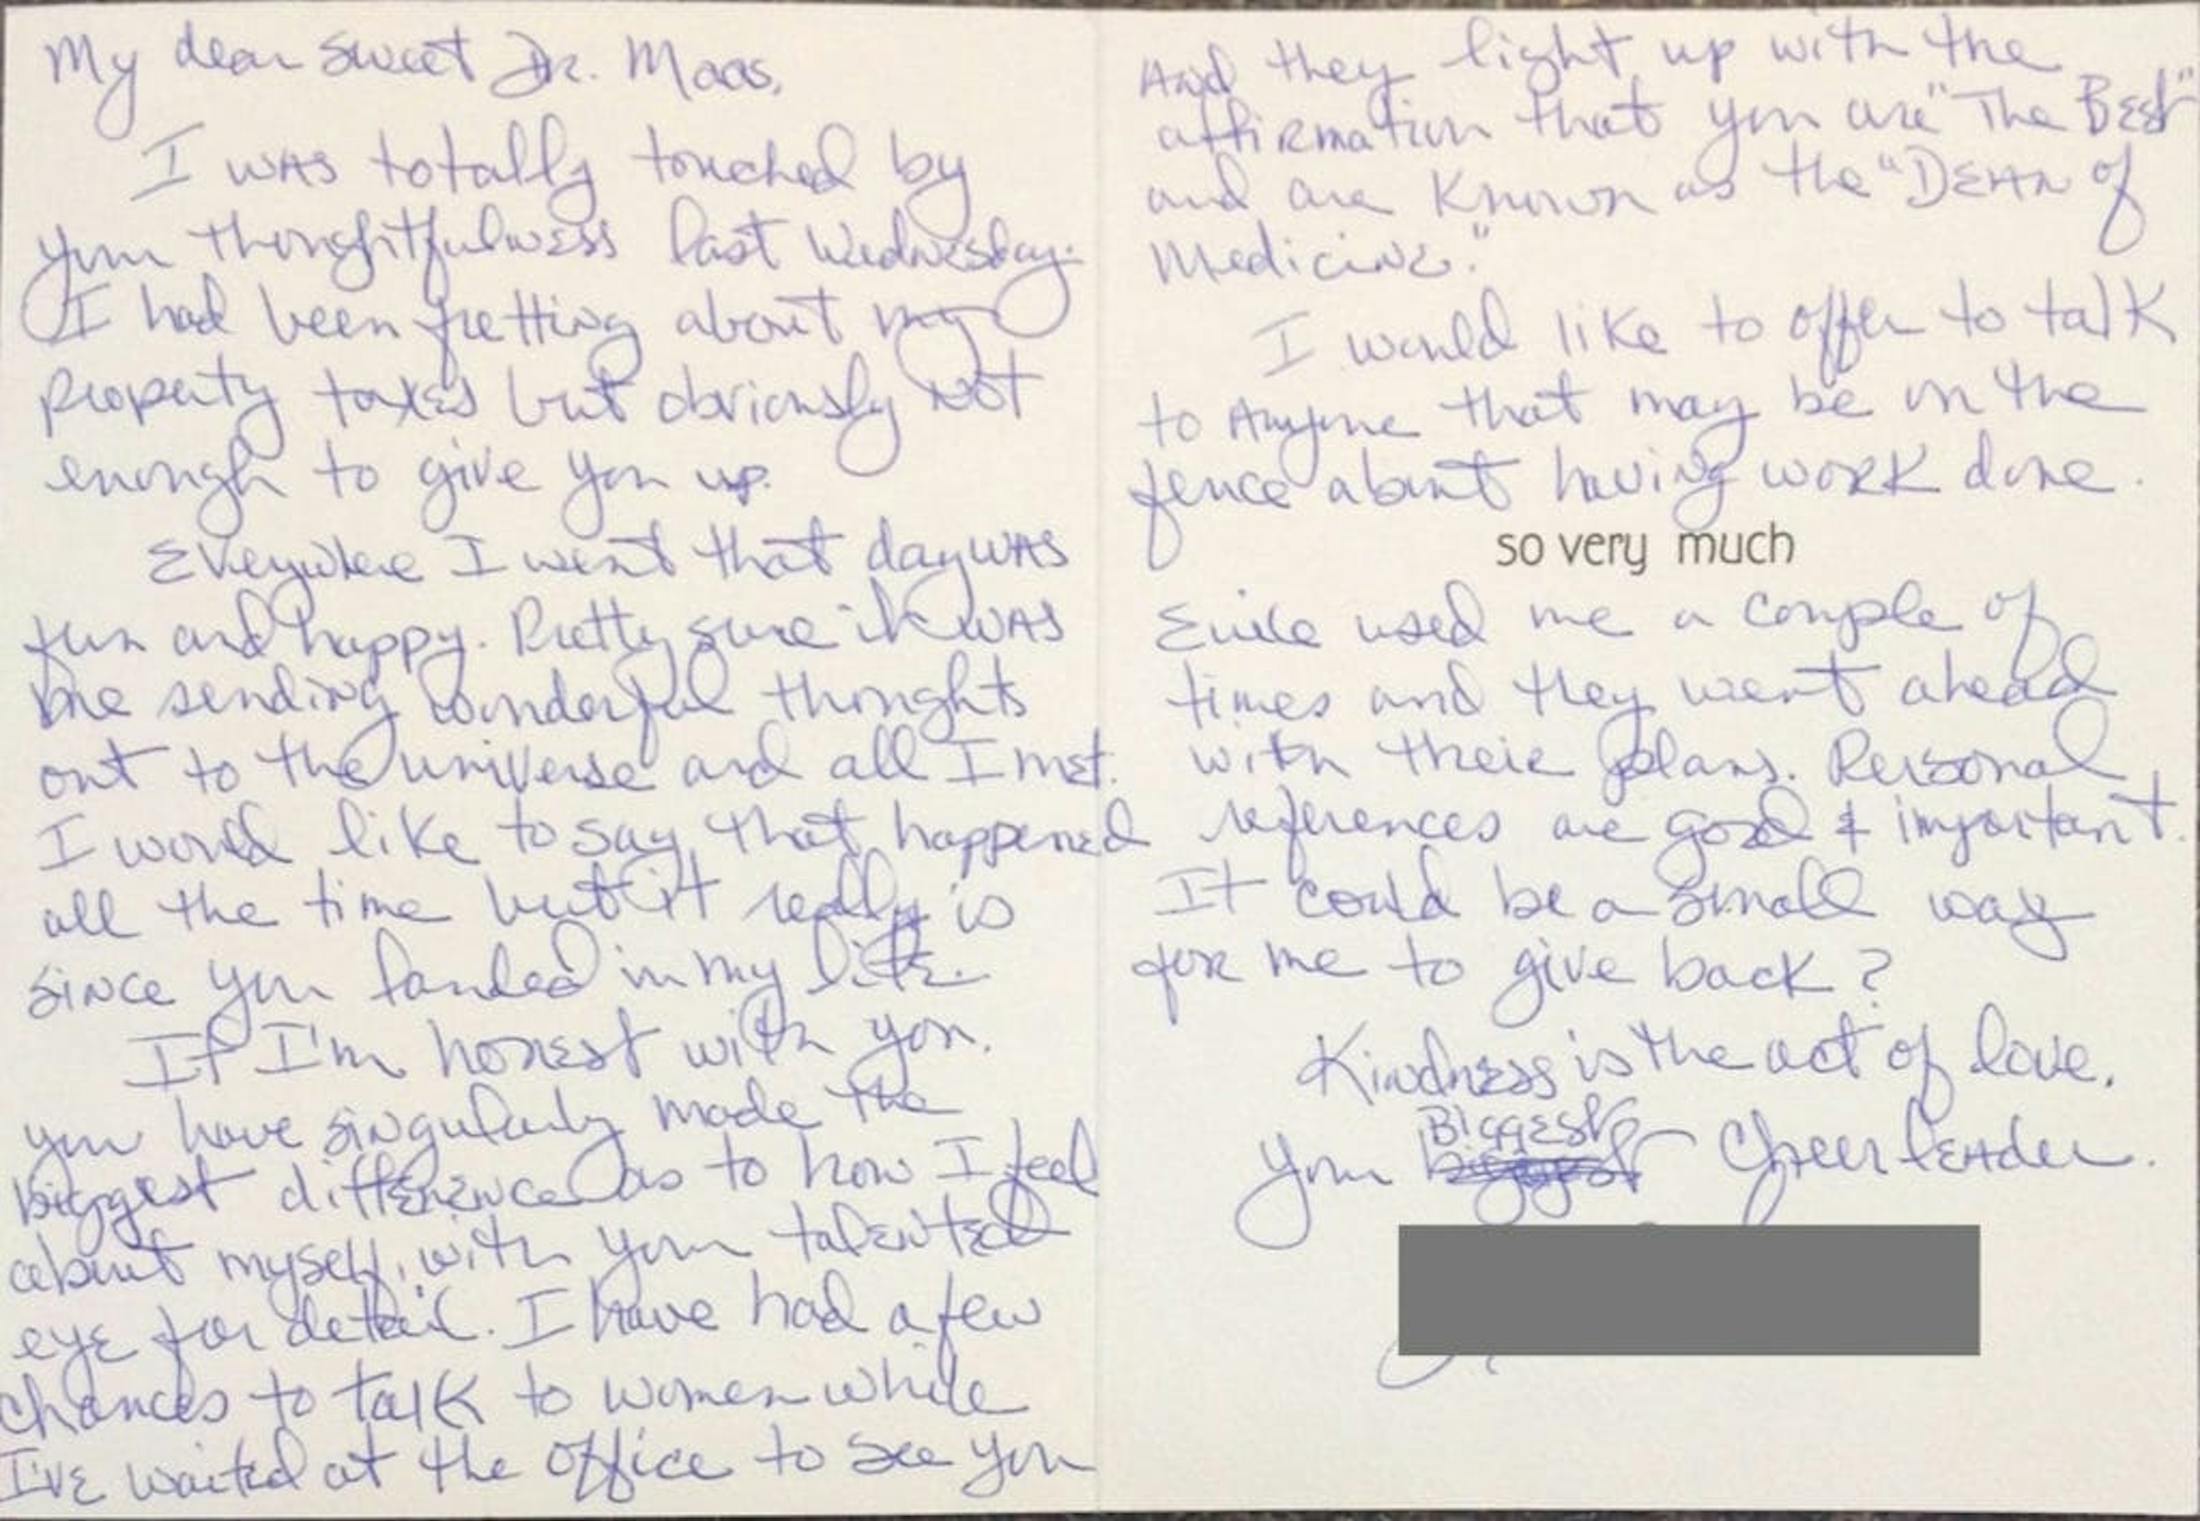 My dear sweet Dr. Maas,
I was totally touched by
your thoughtfulness last Wednesday.
I had been fretting about my
property taxes but obviously not
enough to give you up.
Everywhere I went that day was
fun and happy. Pretty sure it was
me sending wonderful thoughts
out to the universe and all I met.
I would like to say that happened
all the time but it really is
since you landed in my life.
If I'm honest with you.
you have singularly made the
biggest difference as to how I feel
about myself, with your talented
eye for detail. I have had a few
chances to talk to women while
I've waited at the office to see you
And they light up with the
affirmation that you are "The Best"
and are known as the "Dean of
Medicine."
I would like to offer to talk
to anyone that may be on the
fence about having work done.
so very much
used me a couple of
times and they went ahead
with their plans. Personal
references are good & important.
It could be a small way
for me to give back?
Kindness is the act of love.
Your Biggest Cheerleader.